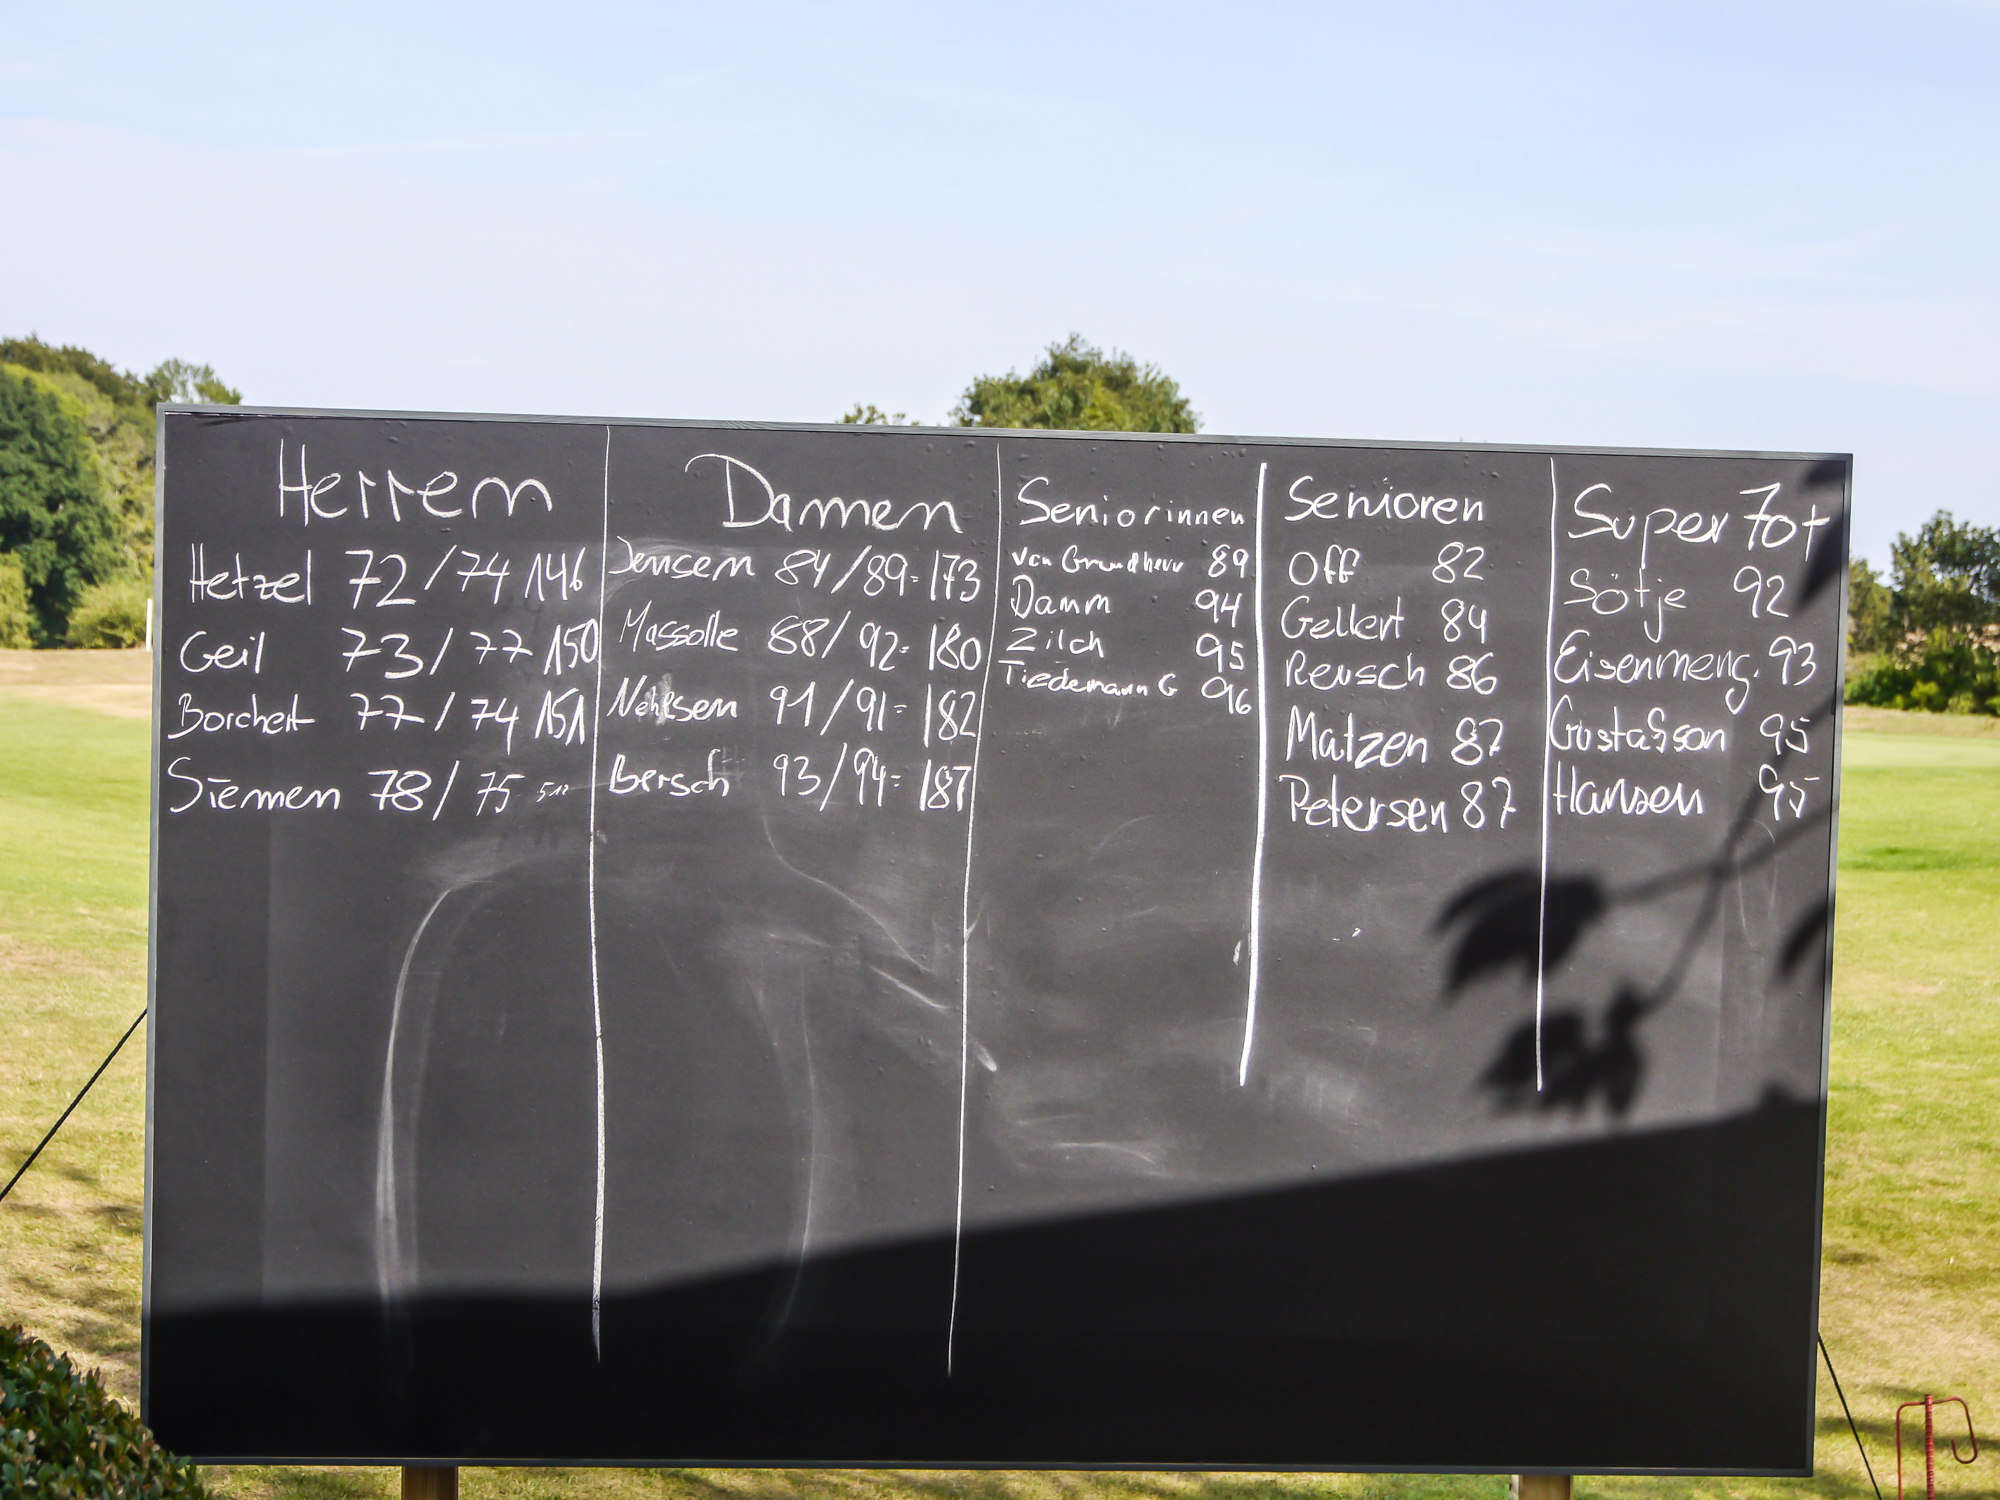 Herren
Hetzel 72/74 146
Geil 73/77 150
Borchert 77/74 151
Siemen 78/75
Damen
Jensen 84/89=173
Massolle 88/92=180
Nehlsen 91/91=182
Bersch 93/94=187
Seniorinnen
von Grundherr 89
Damm 94
Zilch 95
Tiedemann G 96
Senioren
Off 82
Gellert 84
Reusch 86
Matzen 87
Petersen 87
Super 70+
Sötje 92
Eisenmeng. 93
Gustafsson 95
Hansen 95